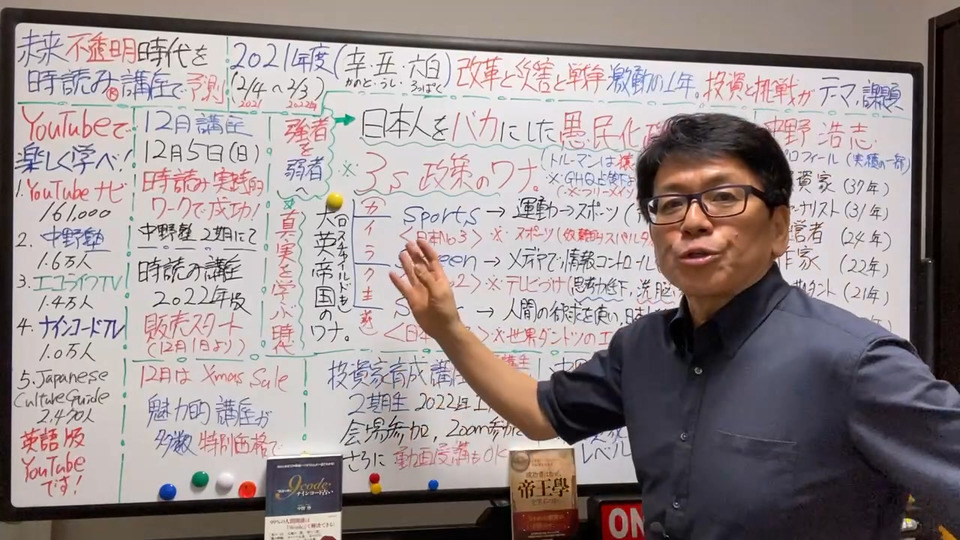 未来不透明時代を
時読み®講座で予測
2021年度(辛・丑・六白)
かのと・うし・ろっぱく
(2/4〜2/3)
2021 2022年
改革と災害と戦争 激動の1年。投資と挑戦がテーマ、課題
YouTubeで
楽しく学べ!
1. YouTubeナビ
161,000
2. 中野塾
1.6万人
3. エコライクTV
1.4万人
4. ナインコードTV
1.0万人
5. Japanese
Culture Guide
2,400人
英語版
YouTube
です!
12月講座
12月5日(日)
時読み実践的
ワークで成功!
中野塾 2期にて
時読み講座
2022年版
販売スタート
(12月1日より)
12月は Xmas Sale
魅力的講座が
多数特別価格で
強者を
弱者へ
真実を学ぶ時代
→日本人をバカにした愚民化政
※3s 政策のワナ。
大英帝国のワナ。
ロスチャイルドも
カイラクを
Sports→運動→スポーツ
<日本No3> ※スポーツ
een→メディアで情報コントロール
2> ※テレビづけ(思考力低下、洗脳
S →人間の欲求を使い、日本
<日本 ※世界ダントツのエ
中野 浩志
ロフィール(実績の一部)
資家(37年)
ナリスト(31年)
営者(24年)
作家(22年)
サルタント(21年)
投資家育成講
2期生 2022年1
会場参加、Zoom参加
さらに動画受講もOK
レベル
9code
ナインコード占い
帝王學
ON